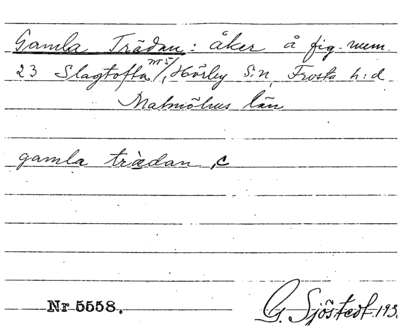 Gamla Trädan: åker å fig. num
23 Slagtofta m 5/, Hörby S:n, Frosta h:d
Malmöhus län
gamla trädan, c
Nr 5558. G. Sjöstedt 193.